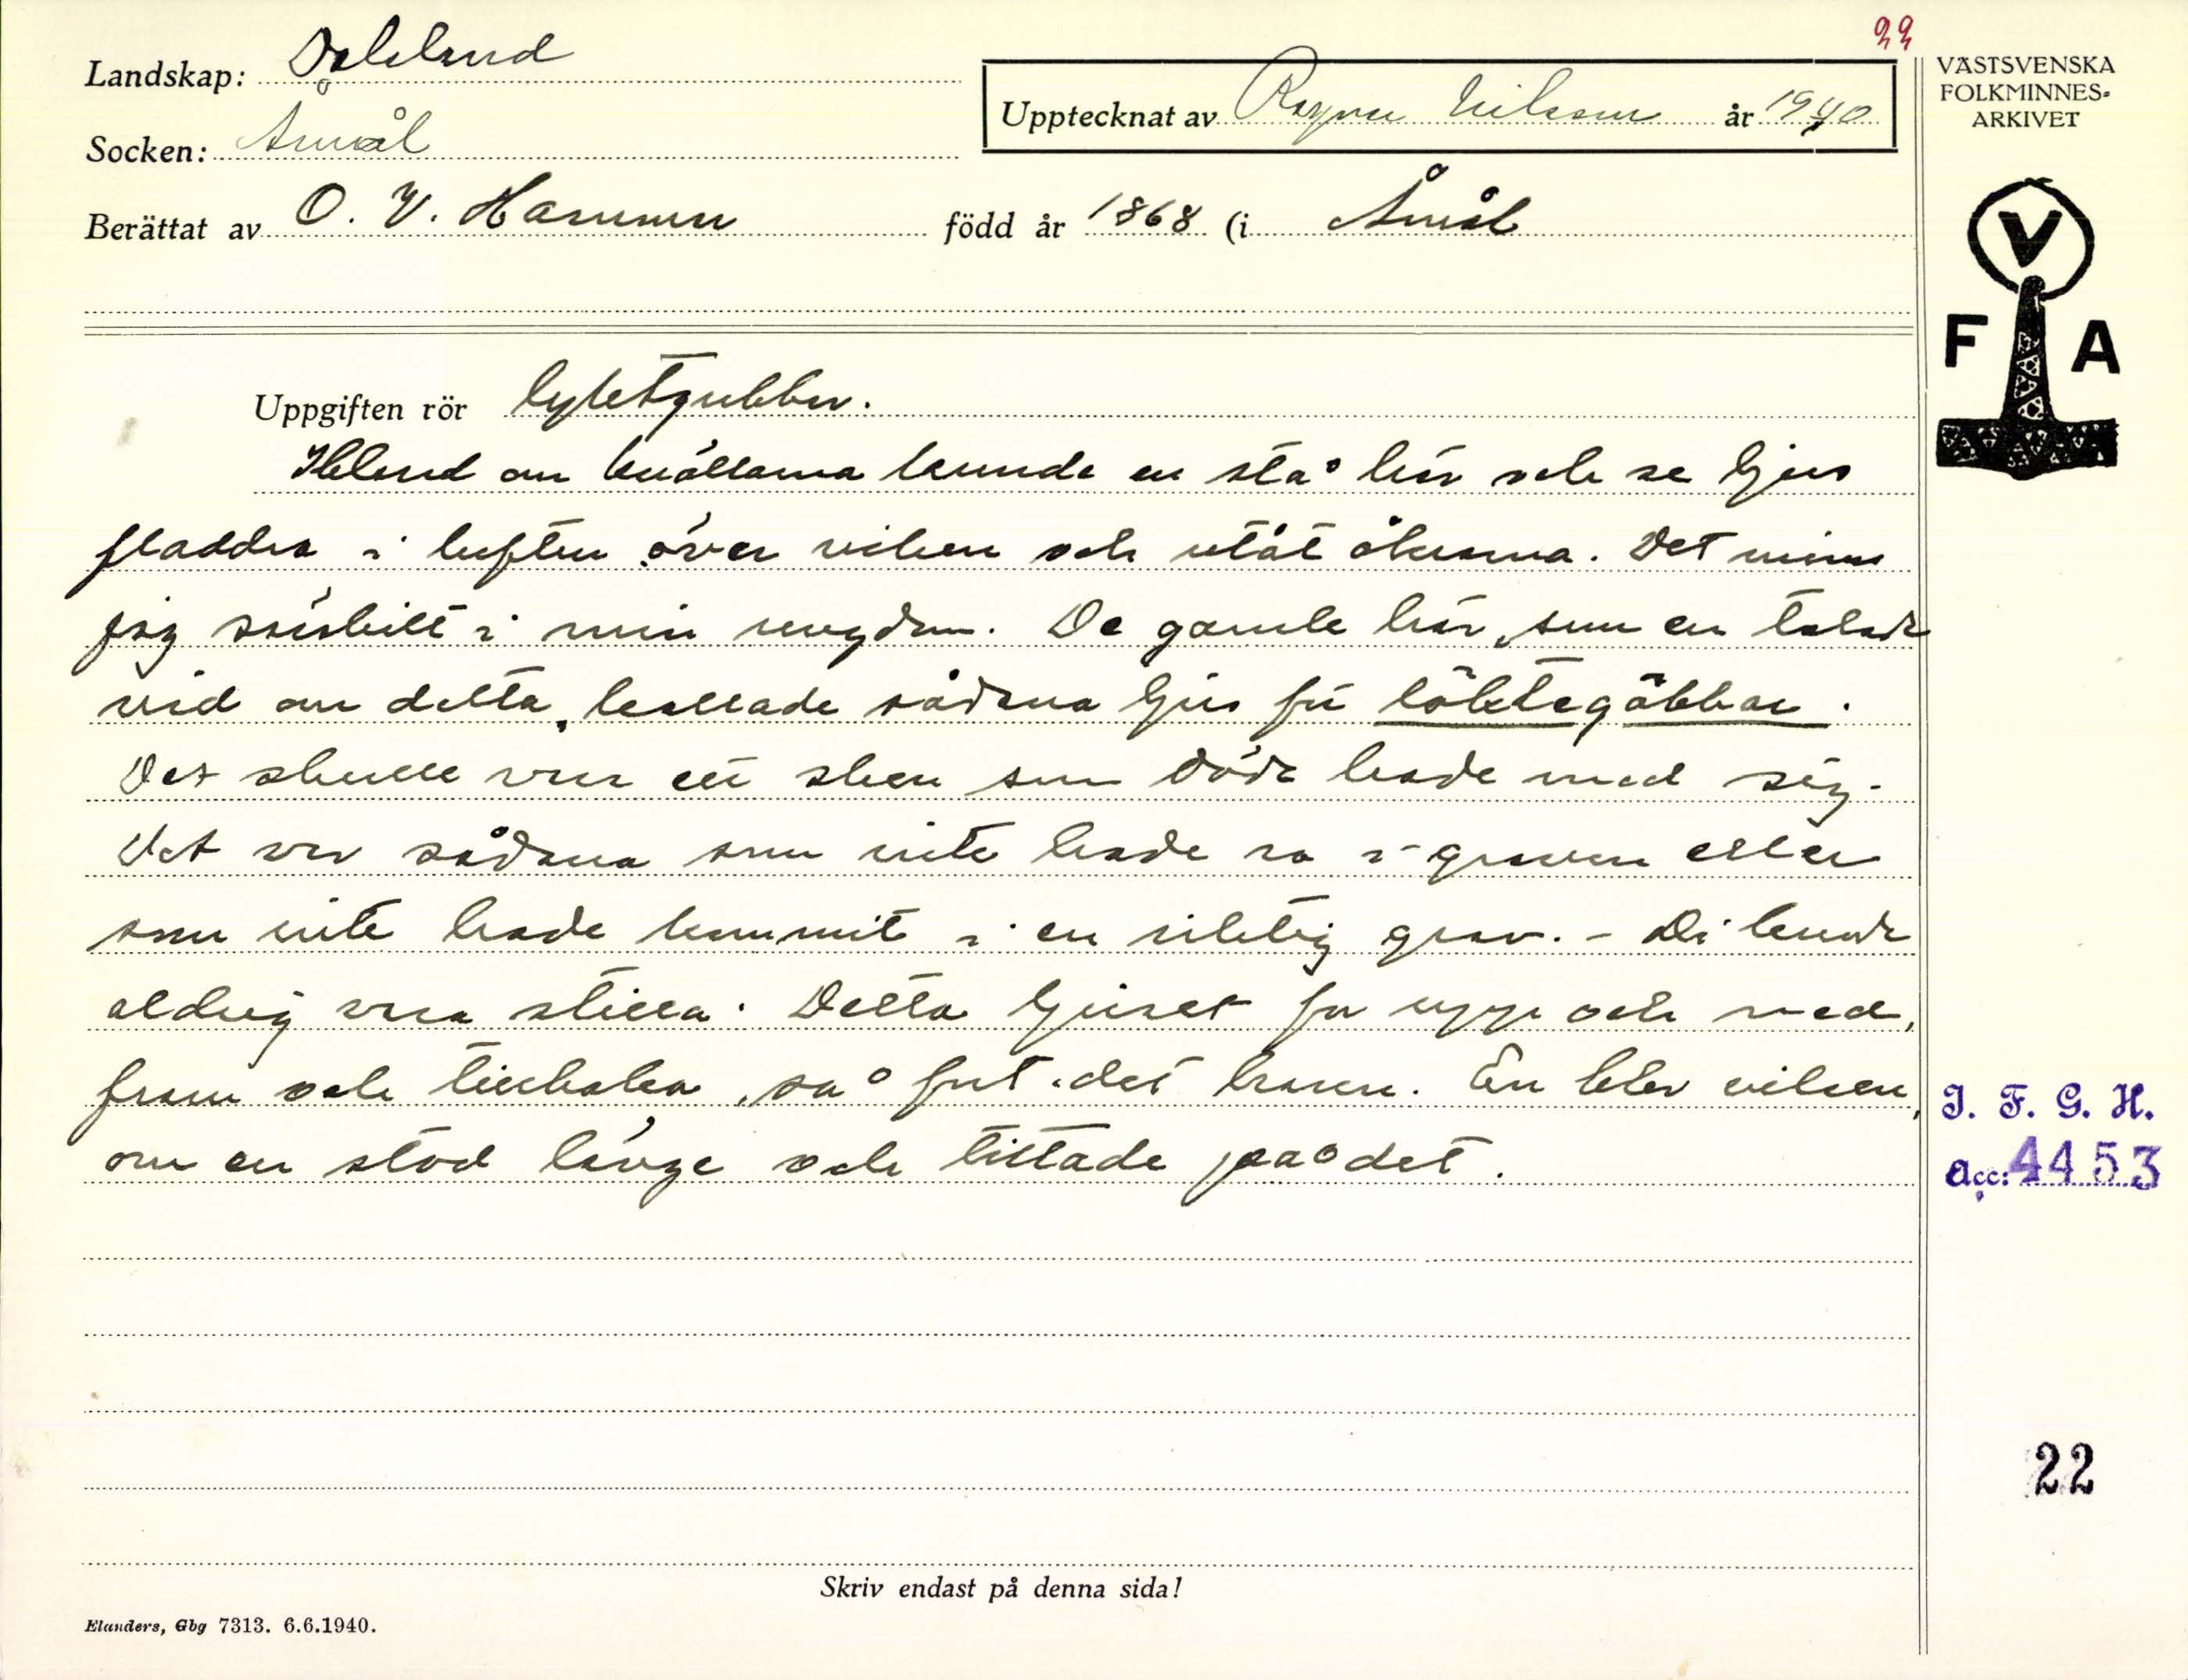 22
Landskap: Dalsland
Upptecknat av Ragnar Nilsson år 1940
VÄSTSVENSKA
FOLKMINNES-
ARKIVET
Socken: Åmål
Berättat av O. V. Hammar född år 1868 (i Åmål
V
F A
Uppgiften rör lyktgubbar.
Ibland om kvällarna kunde en stå här och se ljus
fladdra i luften över viken och utåt åkrarna. Det minns
jag särskilt i min ungdom. De gamle här, som en talade
vid om detta, kallade sådana ljus för löktegöbbar.
Det skulle vara ett sken som döde hade med sig.
Det var sådana som inte hade ro i graven eller
som inte hade kommit i en riktig grav. - Di kunde
aldrig vara stilla. Detta ljuset for upp och ned,
fram och tillbaka, så fort det brann. En blev vilsen,
om en stod länge och tittade på det.
I. F. G. H.
Acc: 4453
22
Skriv endast på denna sida!
Elanders, Gbg 7313. 6.6.1940.